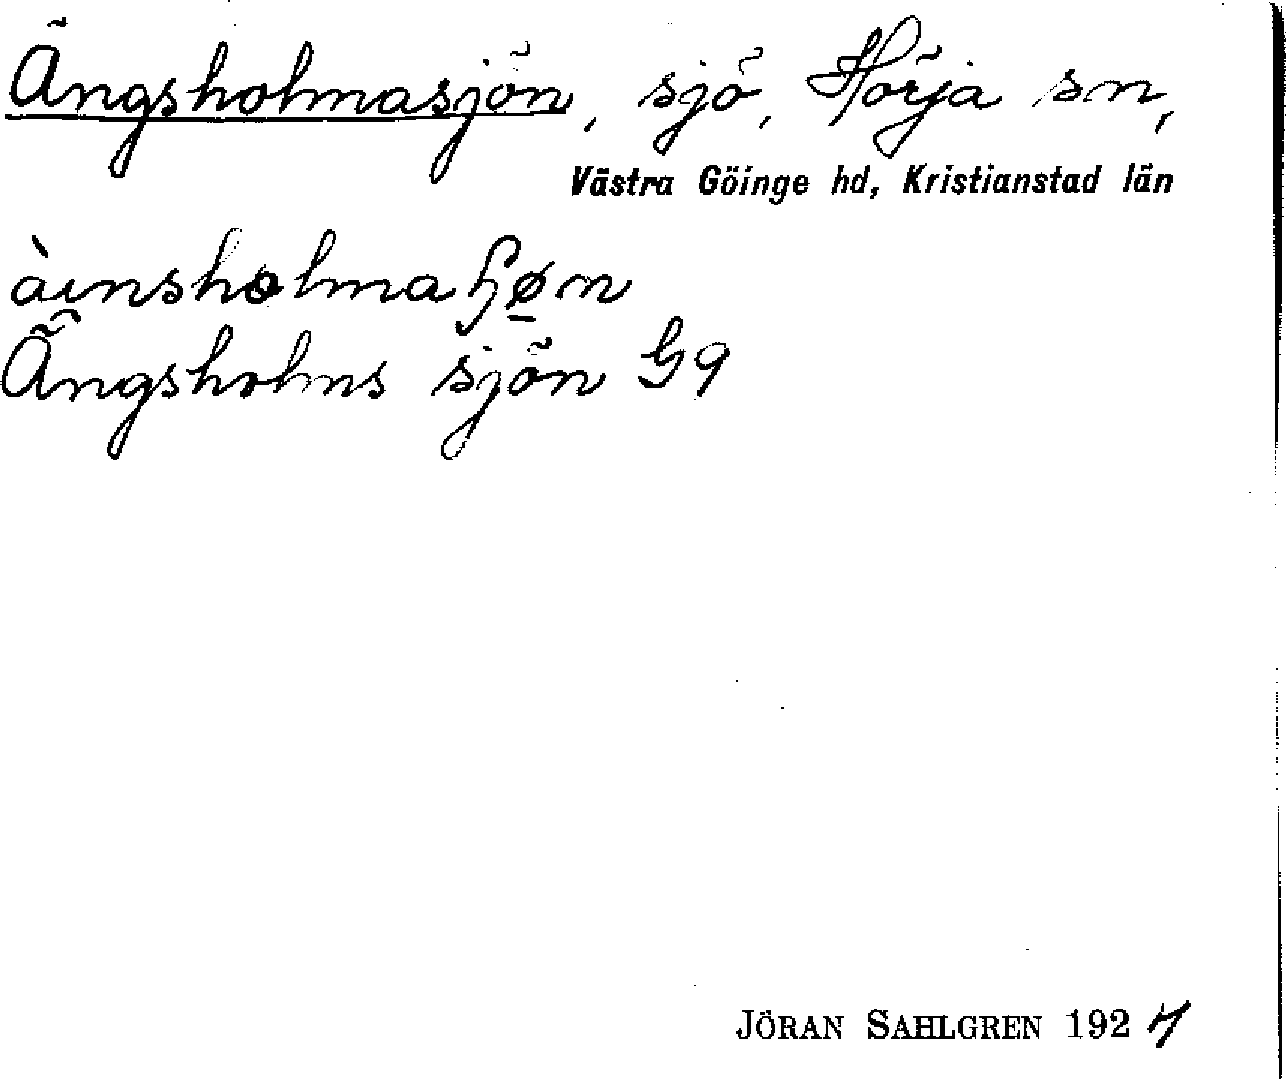 Ängsholmasjön, sjö, Hörja sn,
Västra Göinge hd, Kristianstad län
àınsholmaɧø̲n
Ängsholms sjön G9
JÖRAN SAHLGREN 1927